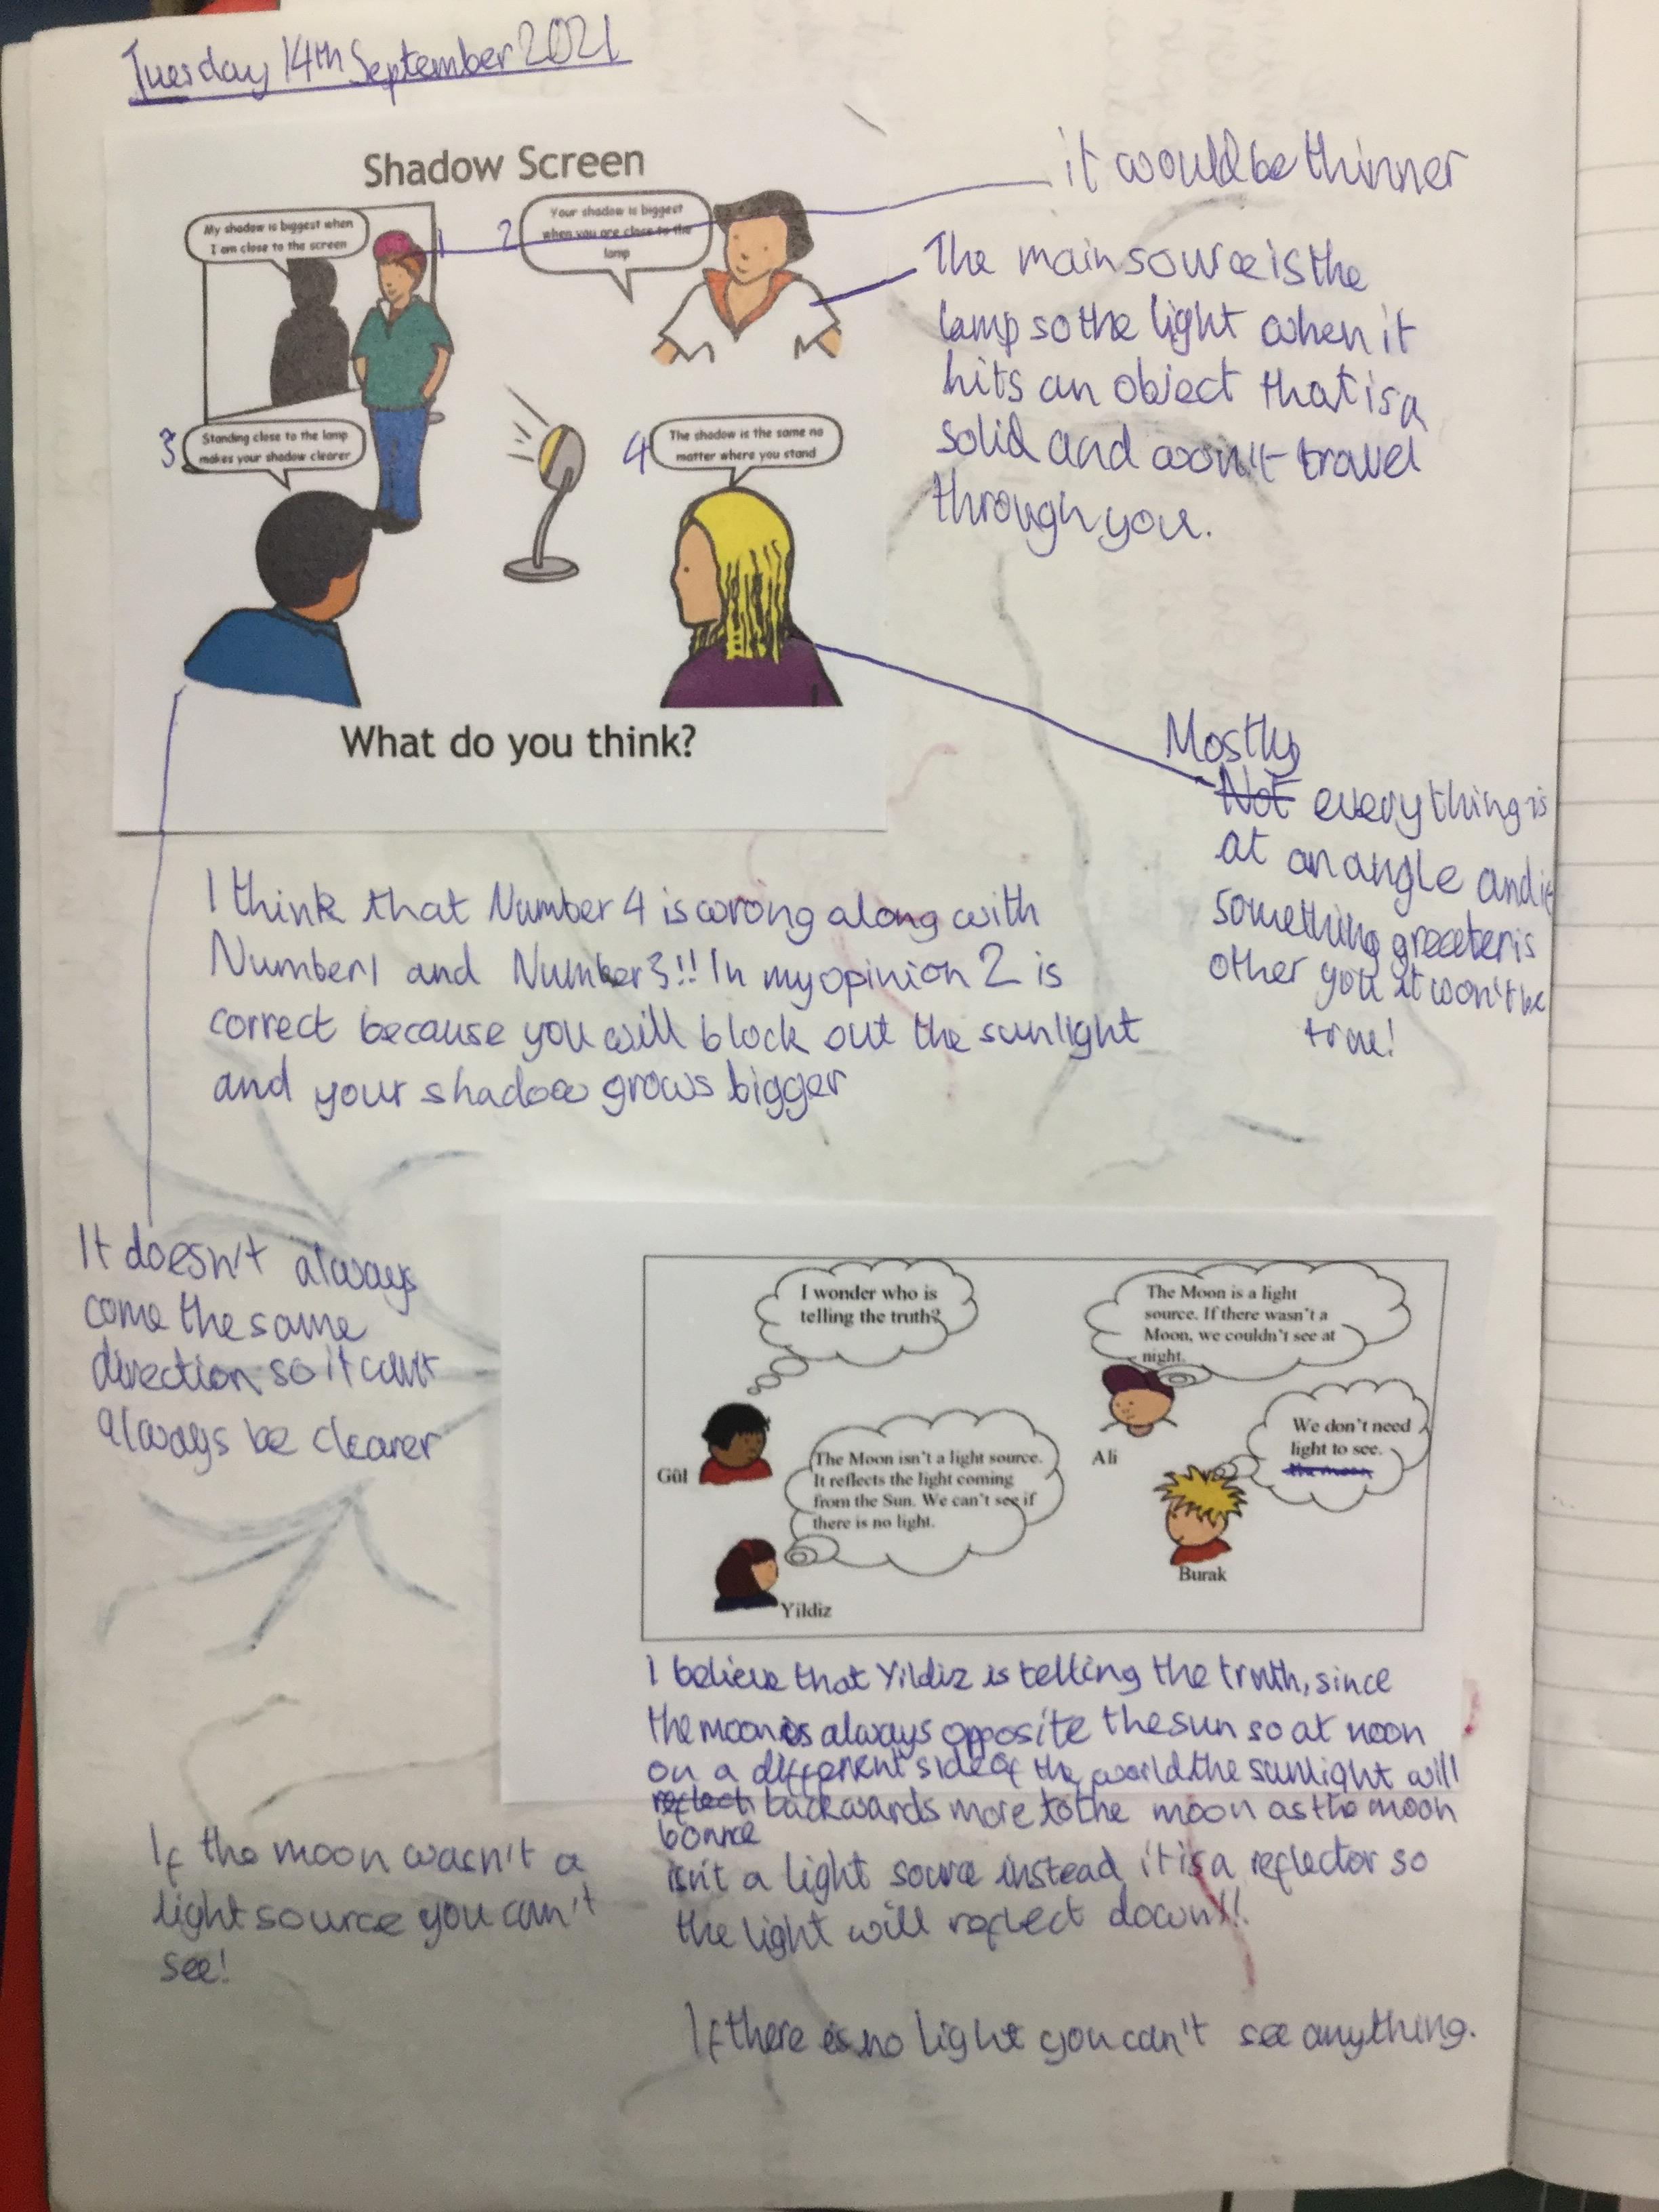 Tuesday 14th September 2021
Shadow Screen
it would be thinner
My shadow is biggest when
I am close to the screen
1
2
Your shadow is biggest
when you are close to the
lamp
The main source is the
lamp so the light when it
hits an object that is a
solid and won't travel
through you.
3
Standing close to the lamp
makes your shadow clearer
4
The shadow is the same no
matter where you stand
What do you think?
Mostly
Not everything is
at an angle and if
something greater is
other you it won't be
true!
I think that Number 4 is wrong along with
Number 1 and Number 3!! In my opinion 2 is
correct because you will block out the sunlight
and your shadow grows bigger
It doesn't always
come the same
direction so it can't
always be clearer
I wonder who is
telling the truth?
The Moon is a light
source. If there wasn't a
Moon, we couldn't see at
night.
Gül
The Moon isn't a light source.
It reflects the light coming
from the Sun. We can't see if
there is no light.
Yildiz
Ali
We don't need
light to see.
the moon
Burak
I believe that Yildiz is telling the truth, since
the moon is always opposite the sun so at noon
on a different side of the world the sunlight will
reflect backwards more to the moon as the moon
bounce
isn't a light source instead it is a reflector so
the light will reflect down!!
If the moon wasn't a
light source you can't
see!
If there is no light you can't see anything.